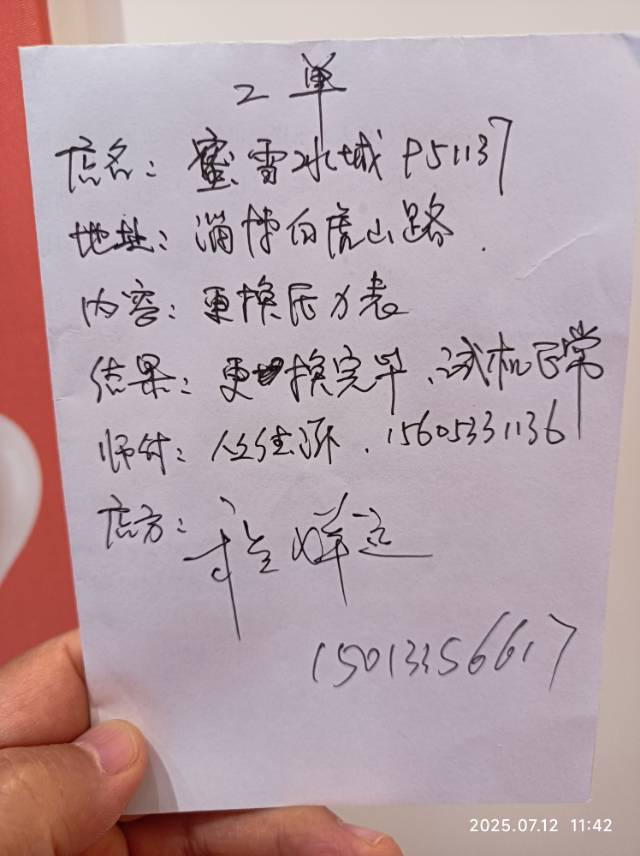 工单
店名：蜜雪冰城 P51137
地址：淄博白虎山路．
内容：更换压力表
结果：更换完毕、试机正常
师付： ．15605331136
店方：
15013356617
2025.07.12 11:42